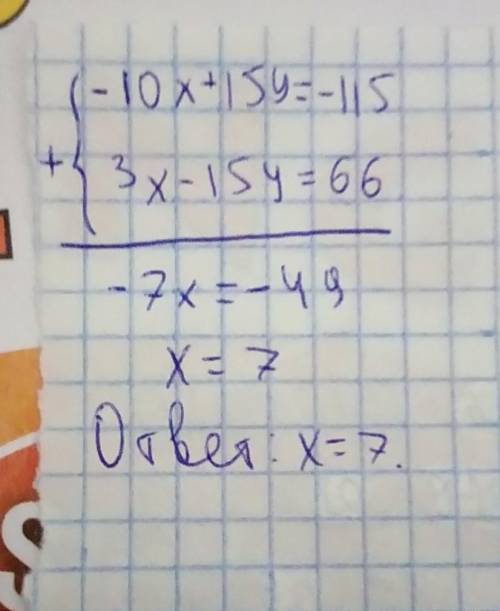 -10x+15y=-115
+ 3x-15y=66
-7x=-49
x=7
Ответ: x=7.